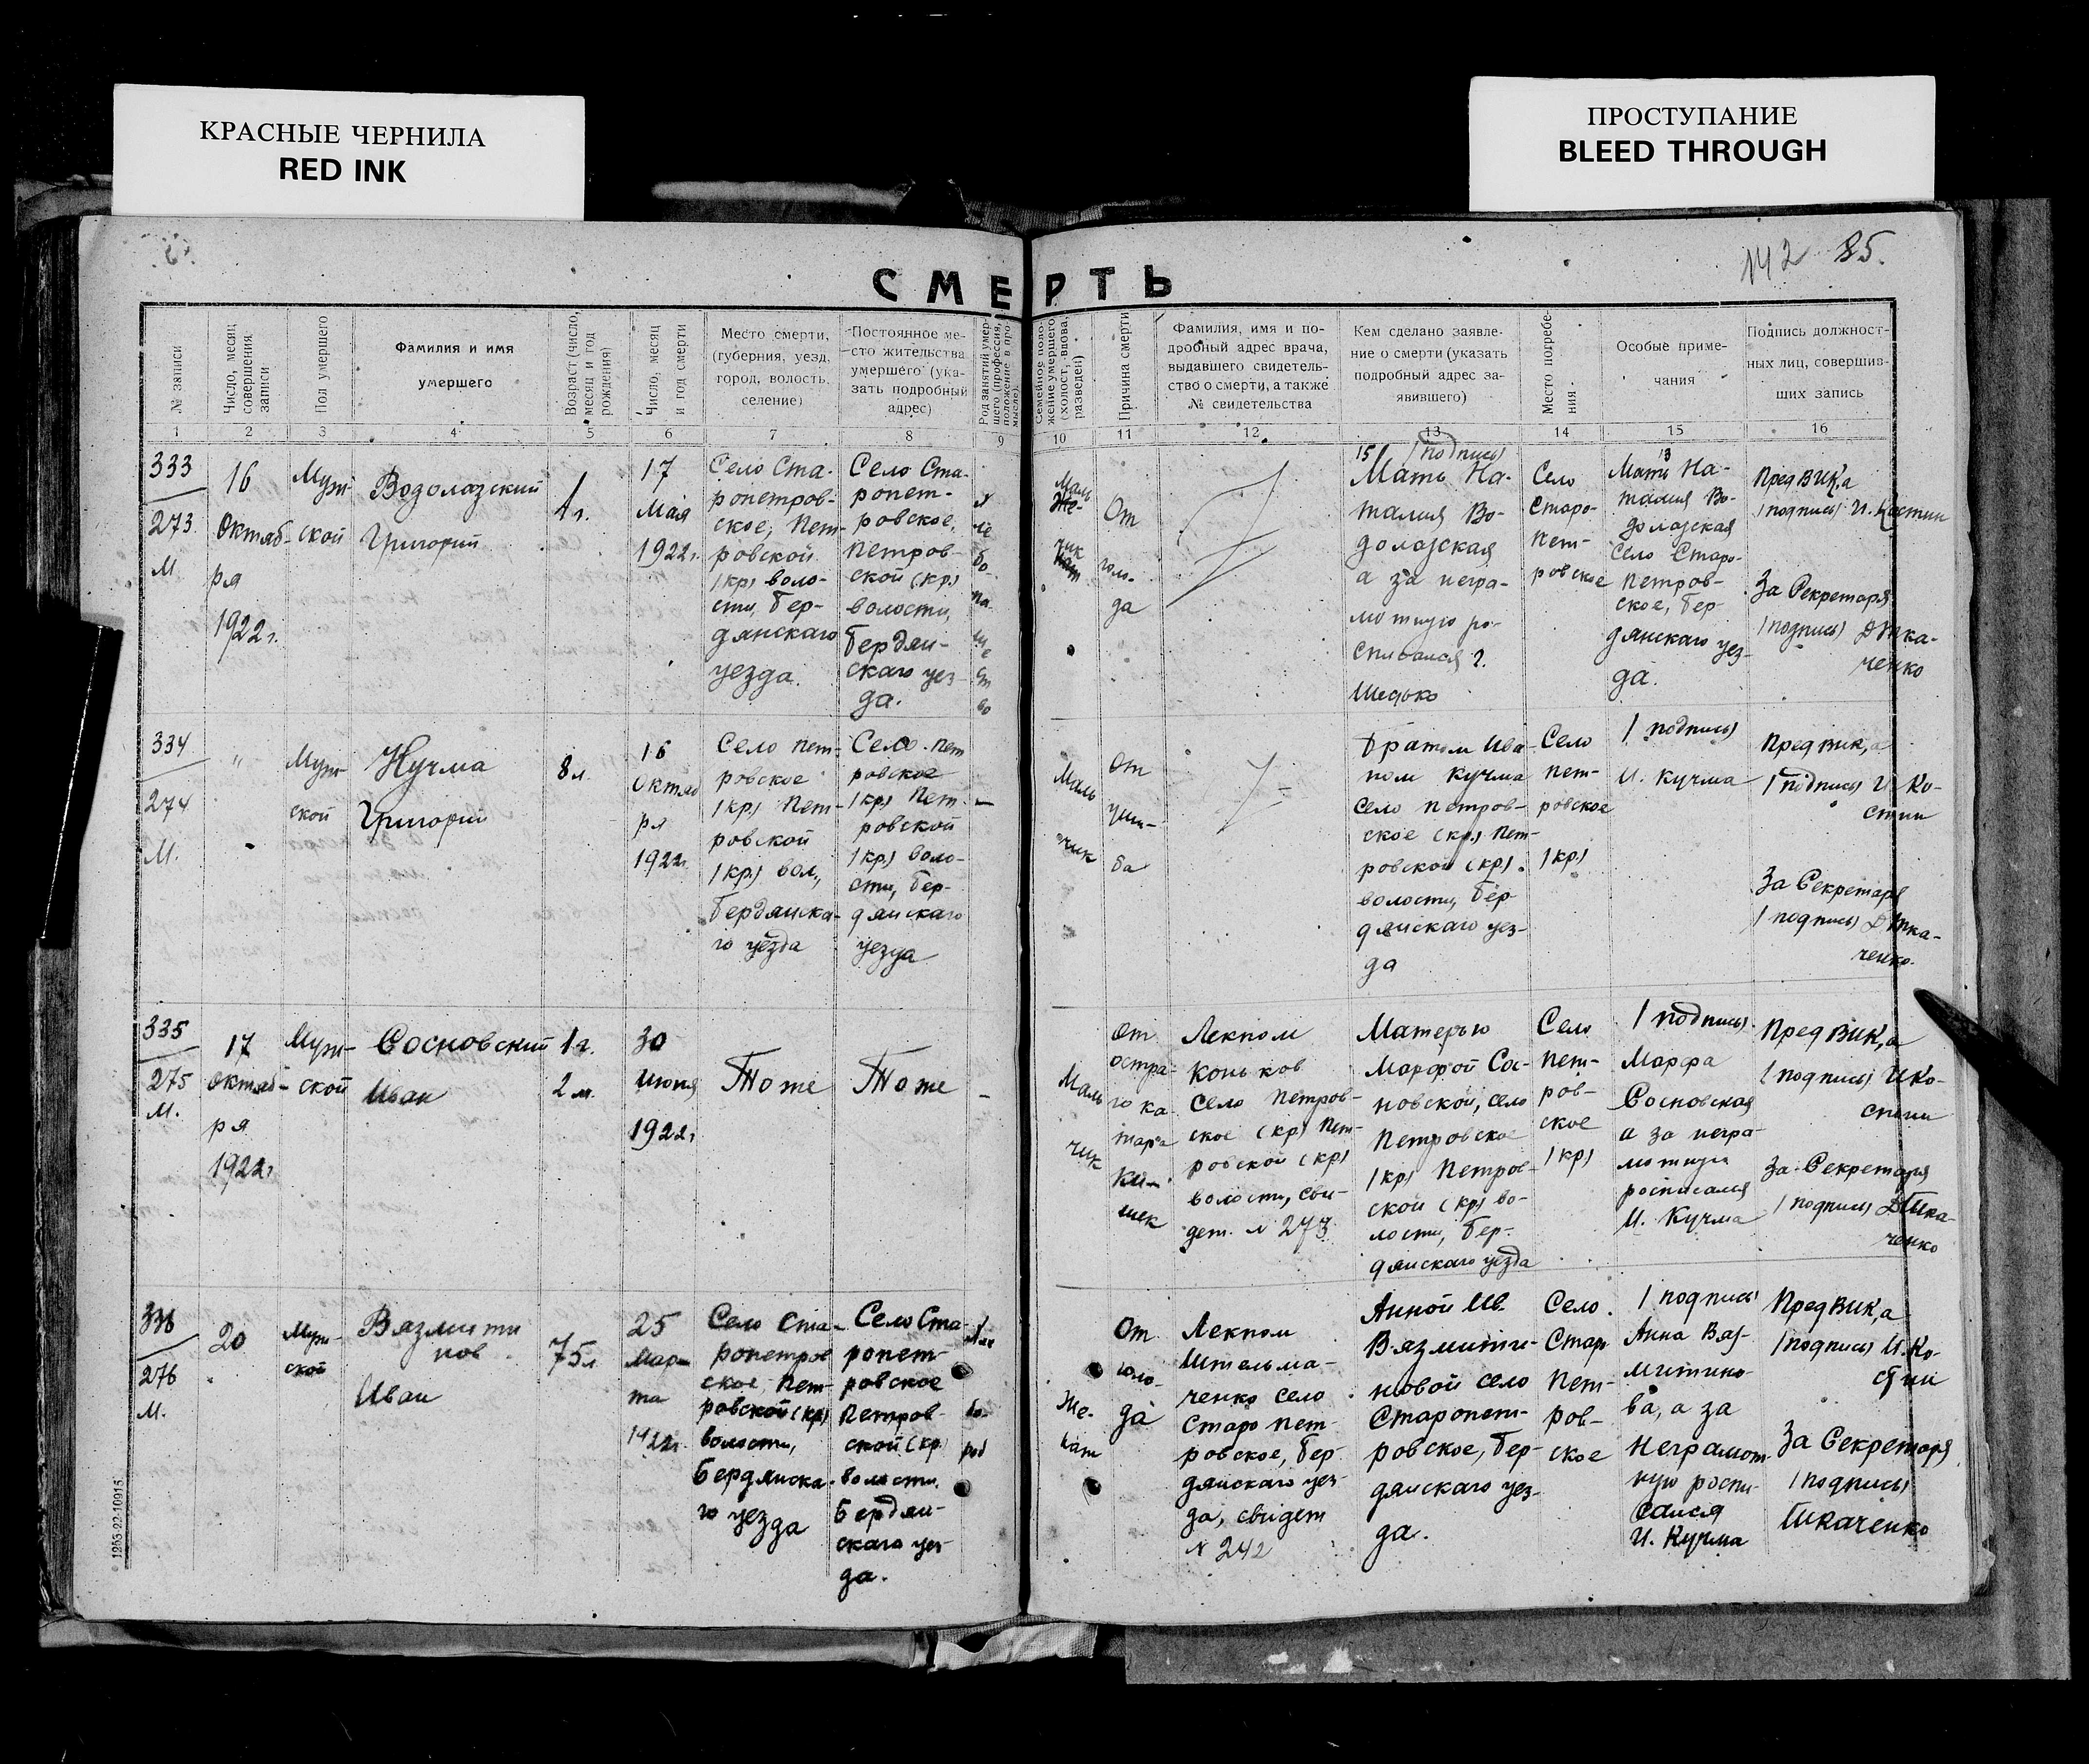 КРАСНЫЕ ЧЕРНИЛА
RED INK
ПРОСТУПАНИЕ
BLEED THROUGH
142 85.
СМЕРТЬ
№ записи
Число, месяц совершения записи
Пол умершего
Фамилия и имя
умершего
Возраст (число, месяц и год рождения)
Число, месяц и год смерти
Место смерти,
(губерния, уезд,
город, волость,
селение)
Постоянное ме-
сто жительства
умершего (ука-
зать подробный
адрес)
Род занятий умер-
шего (профессия,
положение в про-
мысле).
Семейное поло-
жение умершего
(холост, вдова,
разведен)
Причина смерти
Фамилия, имя и по-
дробный адрес врача,
выдавшего свидетель-
ство о смерти, а также
№ свидетельства
Кем сделано заявле-
ние о смерти (указать
подробный адрес за-
явившего)
Место погребе-
ния
Особые приме-
чания
Подпись должност-
ных лиц, совершив-
ших запись
1 2 3 4 5 6 7 8 9 10 11 12 13 14 15 16
333
273
М
16
Октяб-
ря
1922 г.
Муж-
ской
Водолазский
Григорий
1 г.
17
Мая
1922 г.
Село Ста-
ропетров-
ское, Пет-
ровской
(кр) воло-
сти, Бер-
дянскаго
уезда.
Село Ста-
ропет-
ровское,
Петров-
ской (кр)
волости,
Бердян-
скаго уез-
да.
Маль
чик
От
голо-
да
15 (подпись)
Мать На-
талия Во-
долазская
а за негра-
мотную ро-
списался Г.
Шедько
Село
Старо-
Пет-
ровское
13
Мать На-
талия Во-
долазская
Село Старо-
петров-
ское, Бер-
дянскаго уез-
да.
Пред ВИК,а
(подпись) И. Костин
За Секретаря
(подпись) Д Тка-
ченко
334
274
М.
"
Муж-
ской
Кучма
Григорий
8 л.
16
Октяб
ря
1922 г.
Село Пет-
ровское
(кр) Пет-
ровской
(кр) вол.,
Бердянска-
го уезда
Село Пет
ровское
(кр) Пет-
ровской
(кр) воло-
сти, Бер-
дянскаго
уезда
—
Маль
чик
От
уши-
ба
Братом Ива-
ном Кучма
село Петров-
ское (кр) Пет-
ровской (кр)
волости, Бер-
дянскаго уез-
да
Село
Пет-
ровское
(кр)
(подпись)
И. Кучма
Пред вик,а
(подпись) И Ко-
стин
За Секретаря
(подпись) Д Тка-
ченко.
335
275
М.
17
Октяб-
ря
1922 г.
Муж-
ской
Сосновский
Иван
1 г.
2 м.
30
Июня
1922 г.
Тоже
Тоже
-
Маль
чик
От
остра-
го ка
тара
ки-
шек
Лекпом
Коньков
Село Петров-
ское (кр) Пет-
ровской (кр)
волости, сви-
дет. № 273
Матерью
Марфой Сос-
новской, село
Петровское
(кр) Петров-
ской (кр) во-
лости, Бер-
дянскаго уезда
Село
Пет-
ров-
ское
(кр)
(подпись)
Марфа
Сосновская
а за негра-
мотную
росписался
И. Кучма
Пред ВИК,а
(подпись) И Ко-
стин
За Секретаря
(подпись) Д Тка-
ченко
336
276
М.
20
Муж-
ской
Вязмити
нов
Иван
75 л
25
Мар-
та
1922 г.
Село Ста-
ропетров
ское, Пет-
ровской (кр)
волости,
Бердянска-
го уезда
Село Ста-
ропет-
ровское
Петров-
ской (кр)
волости.
Бердян-
скаго уез
да.
Же-
нат
От
голо-
да
Лекпом
Штельма-
ченко село
Старо пет-
ровское, Бер-
дянскаго уез-
да, свидет
№ 242
Анной Ив.
Вязмити-
новой село
Старопет-
ровское, Бер-
дянскаго уез-
да.
Село
Старо
Пет-
ров-
ское
(подпись)
Анна Вяз-
митино-
ва, а за
неграмот-
ную роспи-
сался
И. Кучма
Пред ВИК,а
(подпись) И. Ко-
стин
За Секретаря
(подпись)
Ткаченко
1255-22-10915